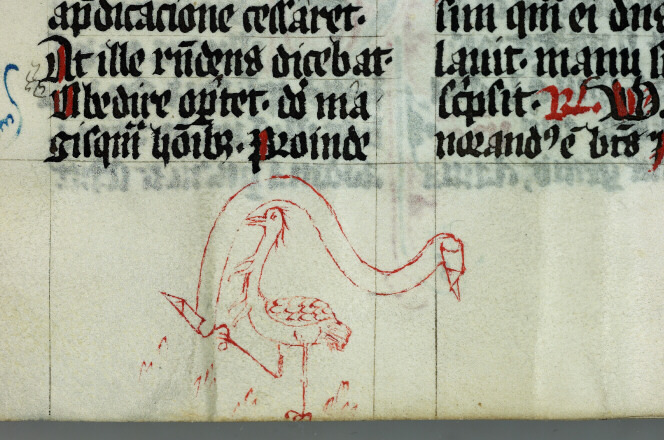 ap̄dicacione cessaret·
At ille rn̄dens dicebat·
Obedire op̄tet· dō ma
gisqm̄ hōibꝫ· Proinde
sim qm̄ ei dn̄s
lauit· manu s
sc̄psit· R.
norandꝰ ē br̄s